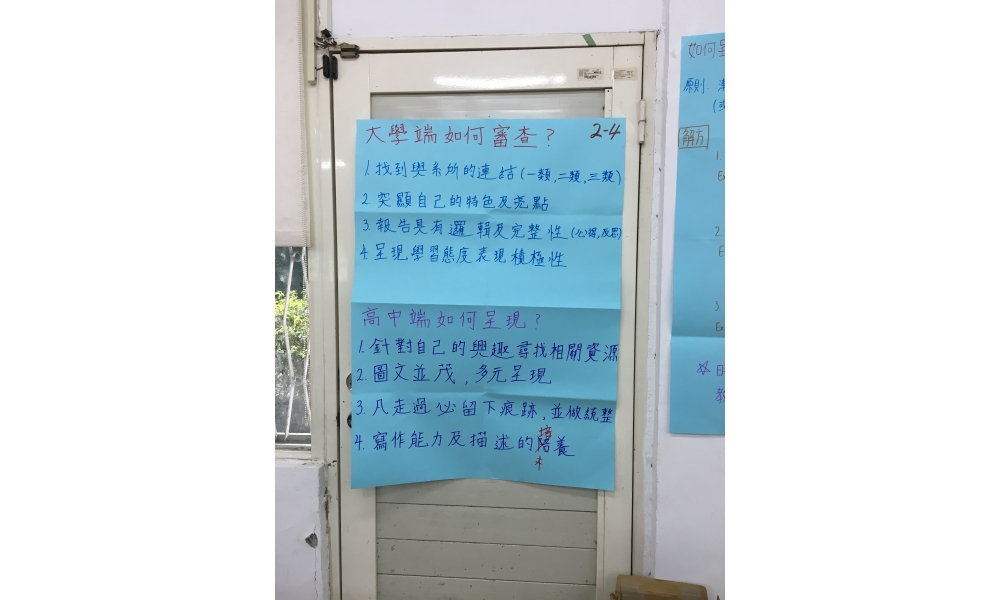 大學端如何審查? 2-4
1.找到與系所的連結(一類,二類,三類)
2.突顯自己的特色及亮點
3.報告具有邏輯及完整性(心得,反思)
4.呈現學習態度表現積極性
高中端如何呈現?
1.針對自己的興趣尋找相關資源
2.圖文並茂,多元呈現
3.凡走過必留下痕跡,並做統整
培
4.寫作能力及描述的陪養
如何呈
原則:
解方
1.
2
3